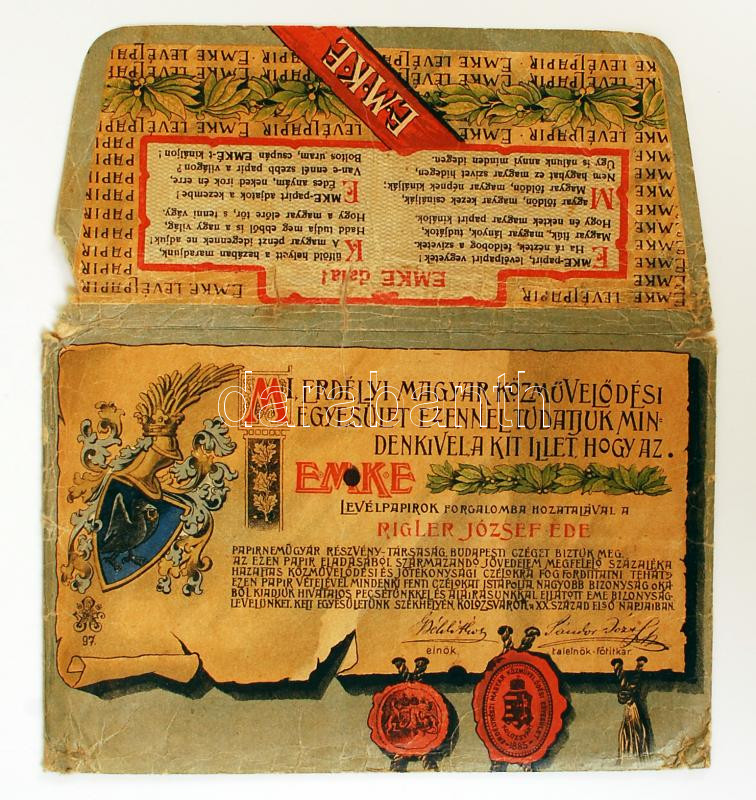 EMKE LEVÉLPAPIR · EMKE LEVÉLPAPIR
E·M·K·E
EMKE dala!
EMKE-papirt, levélpapirt vegyetek!
Ha rá néztek, feldobog a szivetek.
Magyar fiuk, magyar lányok, tudjátok,
Hogy én nektek magyar papirt kinálok.
Magyar földön, magyar kezek csinálják,
Magyar földön, magyar népnek kinálják.
Nem hagyhat ez magyar szivet hidegen,
Ugy is nálunk annyi minden idegen.
Külföld helyett a hazában maradjunk,
A magyar pénzt idegennek ne adjuk!
Hadd tudja meg ebből is a nagy világ,
Hogy a magyar előre tör, s tenni vágy.
EMKE-papirt adjatok a kezembe!
Édes anyám, neked irok én erre,
Van-e ennél szebb papir a világon?
Boltos uram, csupán EMKÉ-t kináljon!
MI, ERDÉLYI MAGYAR KÖZMŰVELŐDÉSI
EGYESÜLET EZENNEL TUDATJUK MIN-
DENKIVEL A KIT ILLET, HOGY AZ.
EMKE
LEVÉLPAPIROK FORGALOMBA HOZATALÁVAL A
RIGLER JÓZSEF EDE
PAPIRNEMŰGYÁR RÉSZVÉNY-TÁRSASÁG, BUDAPESTI CZÉGET BIZTUK MEG.
AZ EZEN PAPIR ELADÁSÁBÓL SZÁRMAZANDÓ JÖVEDELEM MEGFELELŐ SZÁZALÉKA
HAZAFIAS KÖZMŰVELŐDÉSI ÉS JÓTÉKONYSÁGI CZÉLOKRA FOG FORDITTATNI TEHÁT
EZEN PAPIR VÉTELÉVEL MINDENKI FENTI CZÉLOKAT ISTÁPOLJA NAGYOBB BIZONYSÁG OKÁ-
BÓL KIADJUK HIVATALOS PECSÉTÜNKKEL ÉS ALÁIRÁSUNKKAL ELLÁTOTT EME BIZONYSÁG-
LEVELÜNKET. KELT EGYESÜLETÜNK SZÉKHELYÉN KOLOZSVÁROTT, A XX. SZÁZAD ELSŐ NAPJAIBAN.
Sándor József
elnök, talelnök-főtitkár
97.
ERDÉLYRÉSZI MAGYAR KÖZMŰVELŐDÉSI EGYESÜLET
KOLOZSVÁR
1885
darabanth